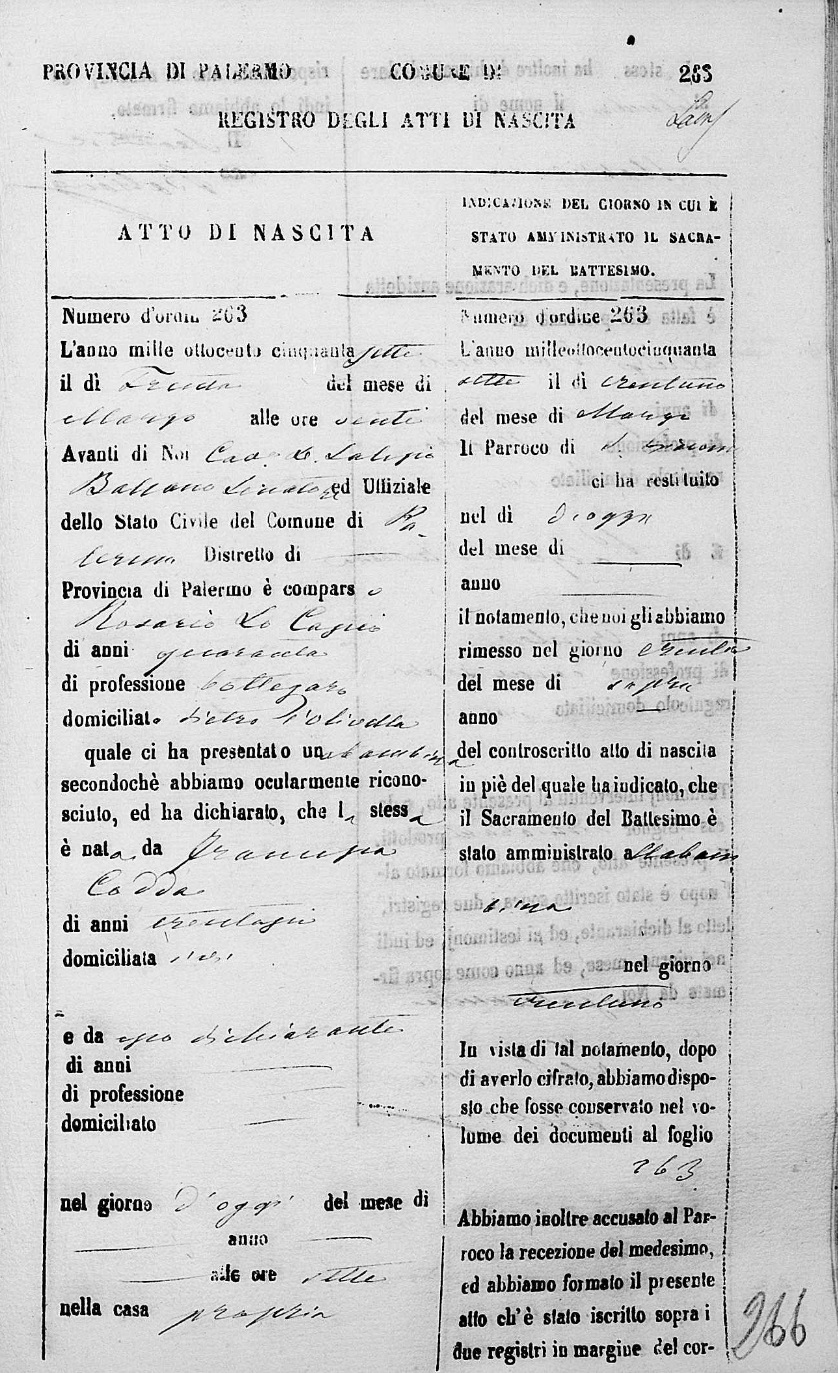 PROVINCIA DI PALERMO COMUNE DI 263
REGISTRO DEGLI ATTI DI NASCITA
ATTO DI NASCITA
Numero d'ordin 263
L'anno mille ottocento cinquanta sette
il dì Trenta del mese di
Marzo alle ore venti
Avanti di Noi Cav. D.
Balsano Senatore ed Uffiziale
dello Stato Civile del Comune di Pa-
lermo Distretto di
Provincia di Palermo è compars o
Rosario Lo Cascio
di anni quaranta
di professione bottegaro
domiciliato dietro l'olivella
quale ci ha presentato una bambina
secondochè abbiamo ocularmente ricono-
sciuto, ed ha dichiarato, che la stessa
è nata da Francesca
Codda
di anni trentasei
domiciliata ivi
e da esso dichiarante
di anni
di professione
domiciliato
nel giorno d'oggi del mese di
anno
alle ore sette
nella casa propria
INDICAZIONE DEL GIORNO IN CUI È
STATO AMMINISTRATO IL SACRA-
MENTO DEL BATTESIMO.
Numero d'ordine 263
L'anno milleottocentocinquanta
sette il dì trentuno
del mese di Marzo
Il Parroco di
ci ha restituito
nel dì d'oggi
del mese di
anno
il notamento, che noi gli abbiamo
rimesso nel giorno trenta
del mese di sopra
anno
del controscritto atto di nascita
in piè del quale ha indicato, che
il Sacramento del Battesimo è
stato amministrato alla bam
bina
nel giorno
trentuno
In vista di tal notamento, dopo
di averlo cifrato, abbiamo dispo-
sto che fosse conservato nel vo-
lume dei documenti al foglio
263
Abbiamo inoltre accusato al Par-
roco la recezione del medesimo,
ed abbiamo formato il presente
atto ch'è stato iscritto sopra i
due registri in margine del cor-
266